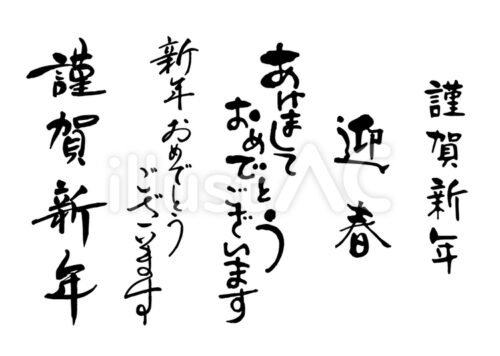 謹賀新年
迎春
あけまして
おめでとう
ございます
新年おめでとう
ございます
謹賀新年
illustAC